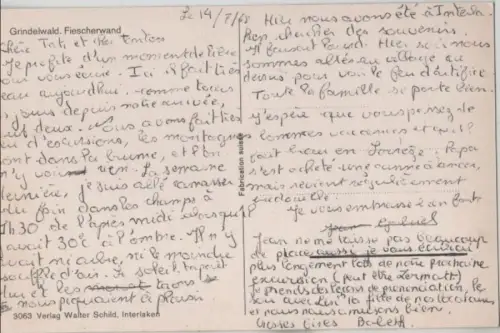 Grindelwald. Fiescherwand
Le 14/7/68
Chère Tati et cher Tonton
Je profite d'un moment de libre
pour vous écrire. Ici il fait très
beau aujourd'hui. comme tous
jours depuis notre arrivée,
deux. Nous avons fait
d'excursions, les montagnes
sont dans la brume, et l'on
n'y voit rien. La semaine
dernière, je suis allé ramasser
du foin dans les champs à
1h30 de l'après midi lorsqu'il
y avait 30° à l'ombre. Il n'y
avait ni aube, ni le moindre
souffle d'air. Le soleil tapait
dur et les taons
nous piquaient à
3063 Verlag Walter Schild, Interlaken
Fabrication suisse
Hier nous avons été à Interla-
ken chercher des souvenirs.
Il faisait lourd. Hier soir nous
sommes allés en village au
dessus pour voir le feu d'artifice.
Toute la famille se porte bien.
J'espère que vous passez de
bonnes vacances et qu'il
fait beau en Corrèze. Papa
s'est acheté une canne à ancer,
mais revient régulièrement
bredouille.
Je vous embrasse bien fort
Jean Gabriel
Jean ne me laisse pas beaucoup
de place aussi je vous écrirai
plus longement lors de notre prochaine
excursion (peut être Zermatt)
Je prends des leçons de prononciation, le
soir avec la fille de nos locataires
et nous nous amusons bien.
Grosses bises Babeth